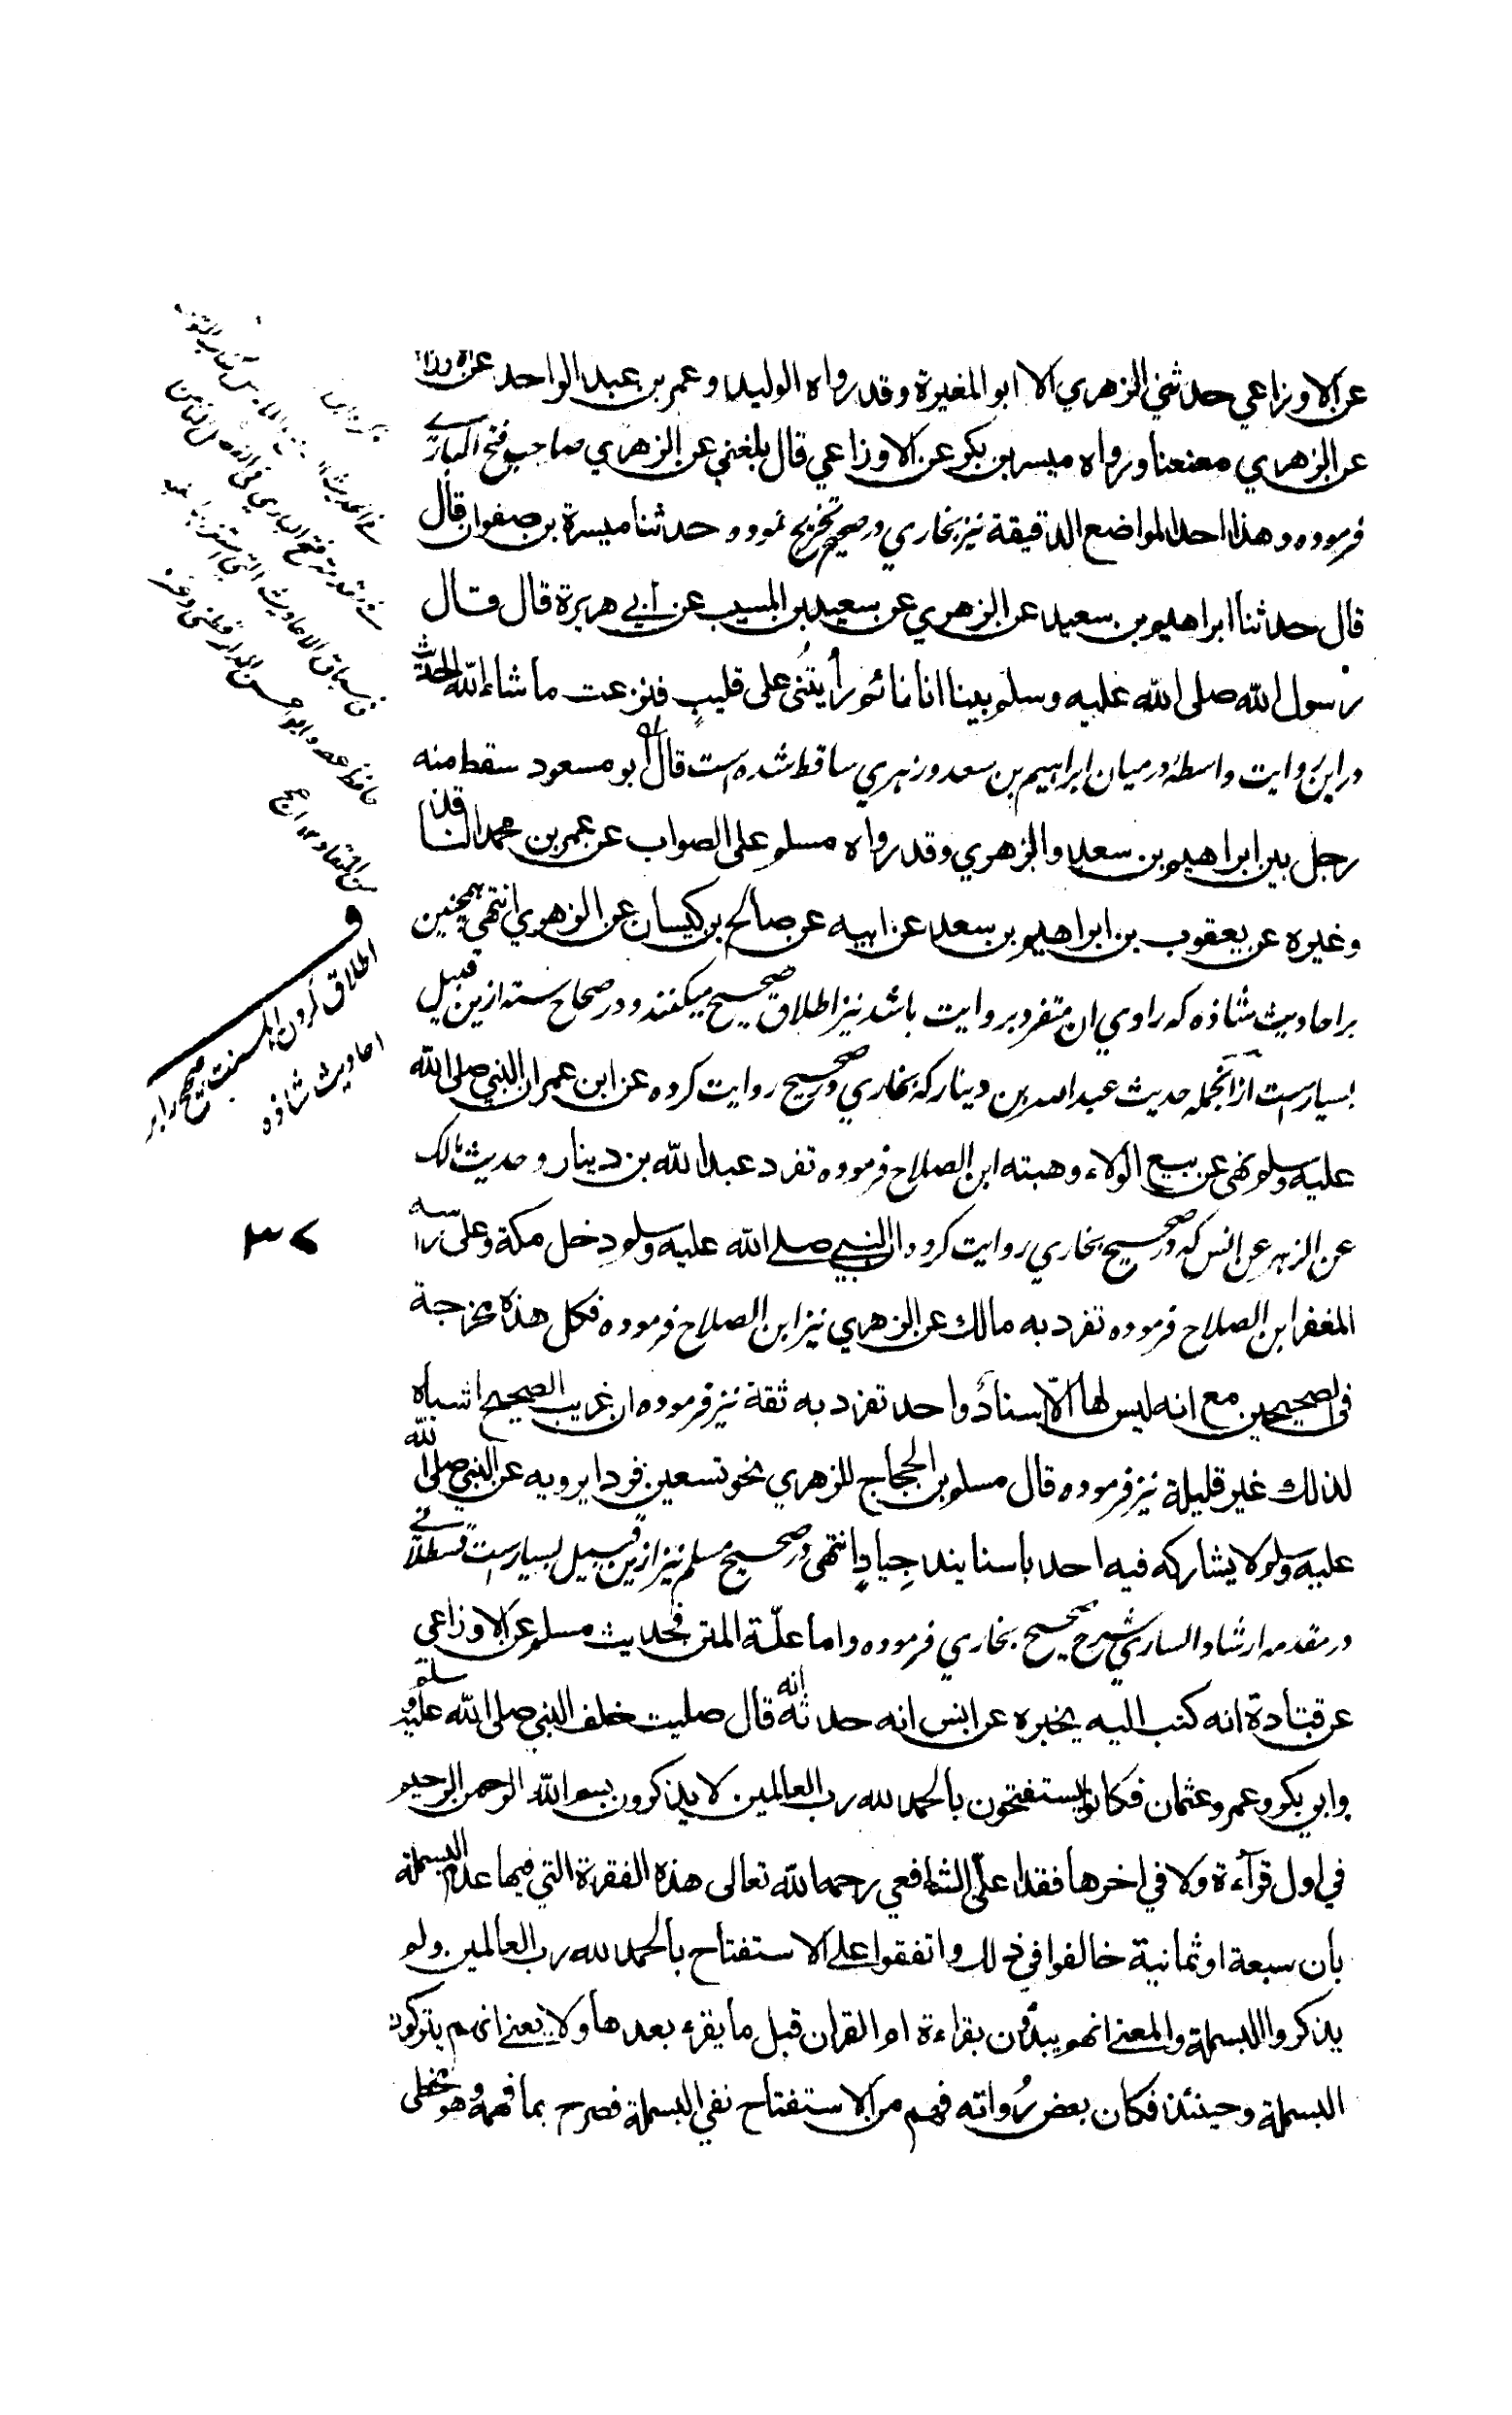 عن الاوزاعي حدثني الزهري الا ابو المغيرة وقد رواه الوليد وعمر بن عبد الواحد عن
عن الزهري معنعنا ورواه ميسر بن بكر عن الاوزاعي قال بلغني عن الزهري صاحب فتح الباري
فرموده وهذا احد المواضع الدقيقة نيز بخاري در صحيح تخريج نموده حدثنا ميسرة بن صفوان قال
قال حدثنا ابراهيم بن سعيد عن الزهري عن سعيد بن المسيب عن أبي هريرة قال قال
رسول الله صلى الله عليه وسلم بينا انا نائم رأيتُني على قليبٍ فنزعت ما شاء الله الحديث
در اين روايت واسطهٔ درميان ابراهيم بن سعد وزهري ساقط شده است قال ابو مسعود سقط منه
رجل بين ابراهيم بن سعد والزهري وقد رواه مسلم على الصواب عن عمر بن محمد الناقد
وغيره عن يعقوب بن ابراهيم بن سعد عن ابيه عن صالح بن كيسان عن الزهري انتهى همچنين
بر احاديث شاذه كه راوي ان متفرد بروايت باشد نيز اطلاق صحيح ميكنند ودر صحاح سته ازين قبيل
بسيارست ازانجمله حديث عبد الله بن دينار كه بخاري در صحيح روايت كرده عن ابن عمر ان النبي صلى الله
عليه وسلم نهى عن بيع الولاء وهبته ابن الصلاح فرموده تفرد عبد الله بن دينار وحديث مالك
عن الزهر عن انس كه در صحيح بخاري روايت كرده ان النبي صلى الله عليه وسلم دخل مكة وعلى راسه
المغفر ابن الصلاح فرموده تفرد به مالك عن الزهري نيز ابن الصلاح فرموده فكل هذه مخرجة
في الصحيحين مع انه ليس لها الّا اسنادٌ واحد تفرد به ثقة نيز فرموده ان غريب الصحيح اشباه
لذلك غير قليلة نيز فرموده قال مسلم بن الحجاج للزهري نحو تسعين فردا يرويه عن النبي صلى الله
عليه وسلم لا يشاركه فيه احد باسنايند جِيادٍ انتهى در صحيح مسلم نيز ازين قبيل بسيارست قسطلاني
در مقدمه ارشاد الساري شرح صحيح بخاري فرموده واما علّة المتن فحديث مسلم عن الاوزاعي
عن قتادة انه كتب اليه يخبره عن انس انه حدثه انه قال صليت خلف النبي صلى الله عليه وسلم
وابي بكر وعمر وعثمان فكانوا يستفتحون بالحمد لله رب العالمين لا يذكرون بسم الله الرحمن الرحيم
في اول قرآءة ولا في اخرها فقد اعلّ الشافعي رحمه الله تعالى هذه الفقرة التي فيها عدم البسملة
بان سبعة او ثمانية خالفوا في ذلك واتفقوا على الاستفتاح بالحمد لله رب العالمين ولم
يذكروا البسملة والمعنى انهم يبدؤن بقراءة ام القران قبل ما يقرء بعدها ولا يعنى انهم يتركون
البسملة وحينئذ فكان بعض رُواته فهم من الاستفتاح نفي البسملة فصرح بما فهمه وهو مخطى
اطلاق كردن اهلسنت صحيح را بر
احاديث شاذه